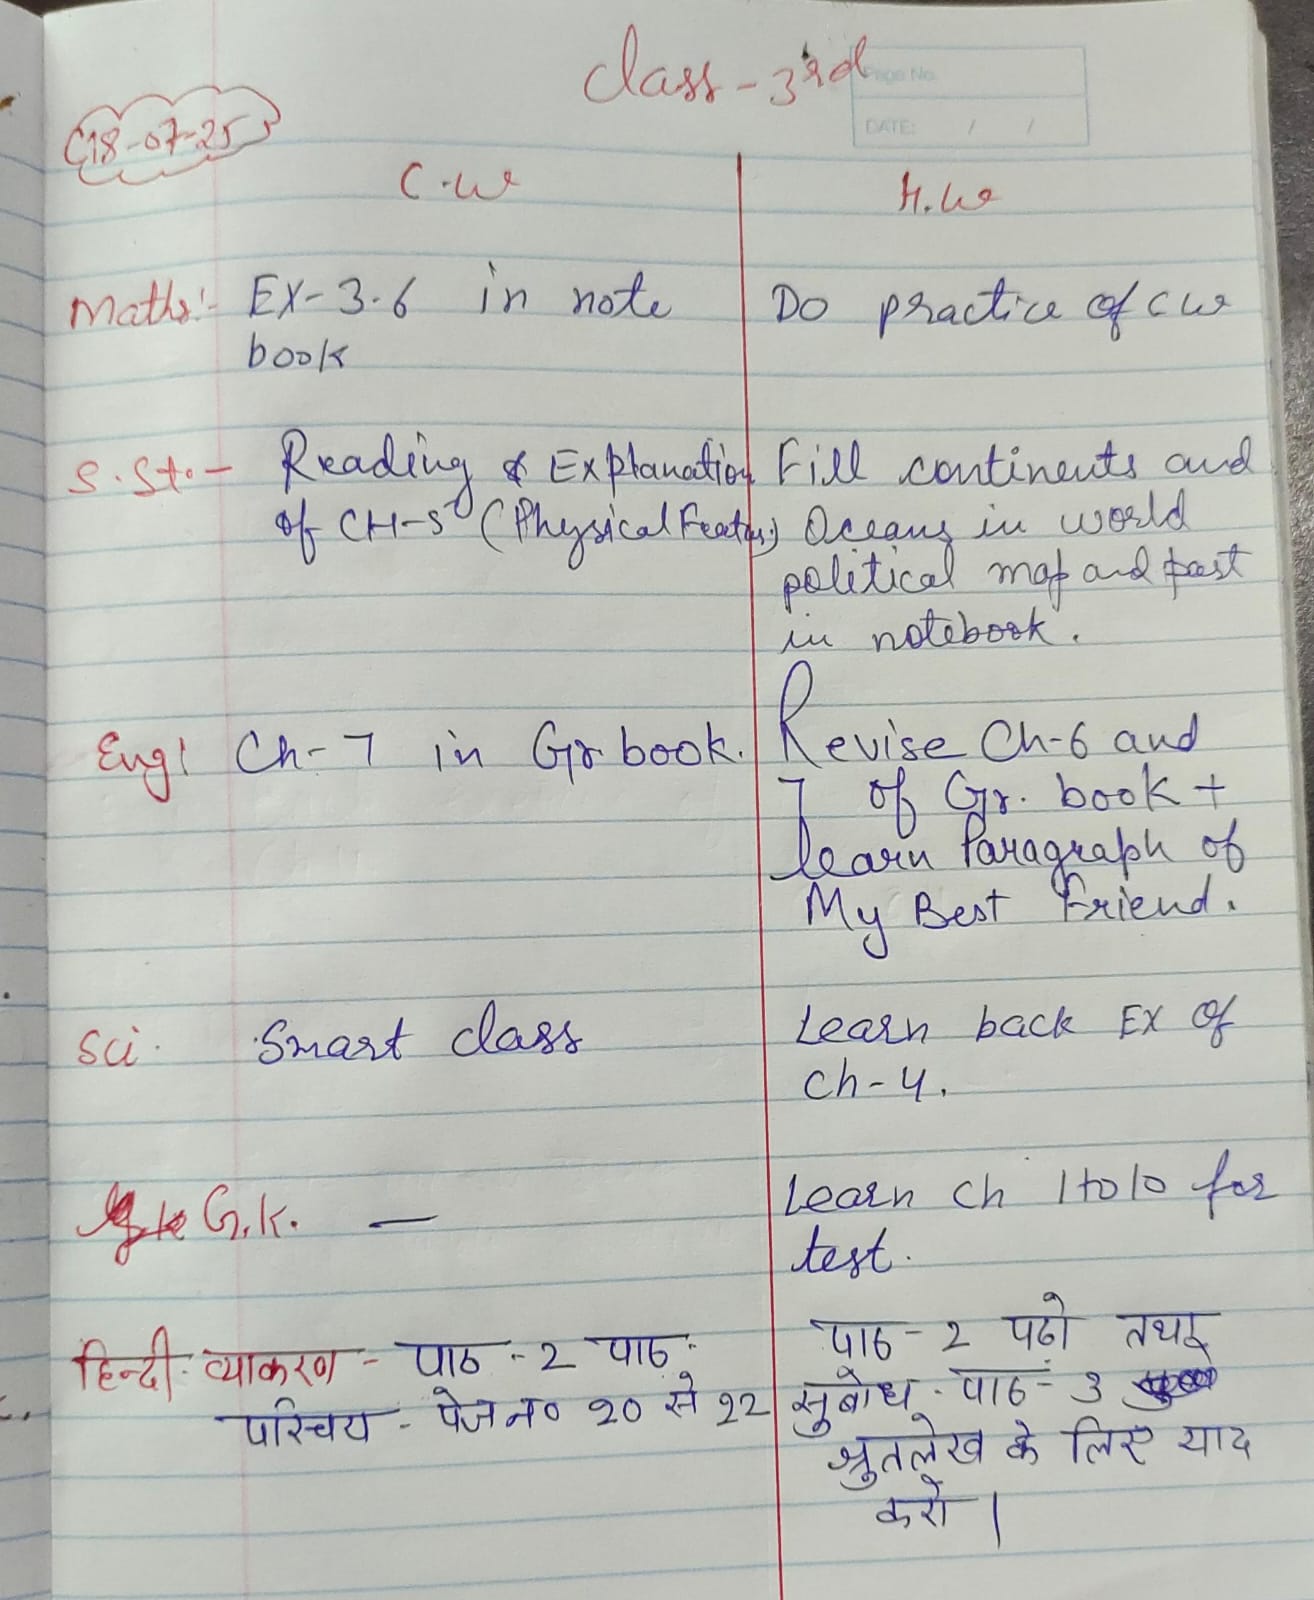 Class-3rd
Page No.
DATE: / /
18-07-25
C.W
H.W
Maths:- Ex-3.6 in note
book
Do practice of cw
S.St.- Reading & Explanation
of CH-5 (Physical Features)
Fill continents and
Oceans in world
political map and past
in notebook.
Engl Ch-7 in Gr book.
Revise Ch-6 and
7 of Gr. book +
learn Paragraph of
My Best Friend.
Sci. Smart class
Learn back Ex of
Ch-4.
G.K. —
Learn ch 1 to 10 for
test.
हिन्दी व्याकरण - पाठ - 2 पाठ
परिचय - पेज न० 20 से 22
पाठ - 2 पढो
सुबोध - पाठ - 3
श्रुतलेख के लिए याद
करो |